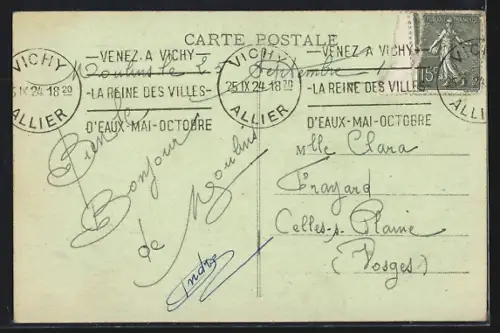 CARTE POSTALE
VICHY
25 IX 24 18 20
ALLIER
-VENEZ A VICHY-
-LA REINE DES VILLES-
D'EAUX-MAI-OCTOBRE
VICHY
25 IX 24 18 20
ALLIER
-VENEZ A VICHY-
-LA REINE DES VILLES-
D'EAUX-MAI-OCTOBRE
ALLIER
15
Moulins le 2 Septembre
Bien le
Bonjour
de Moulins
André
Mlle Clara
Frayard
Celles-s-Plaine
(Vosges)